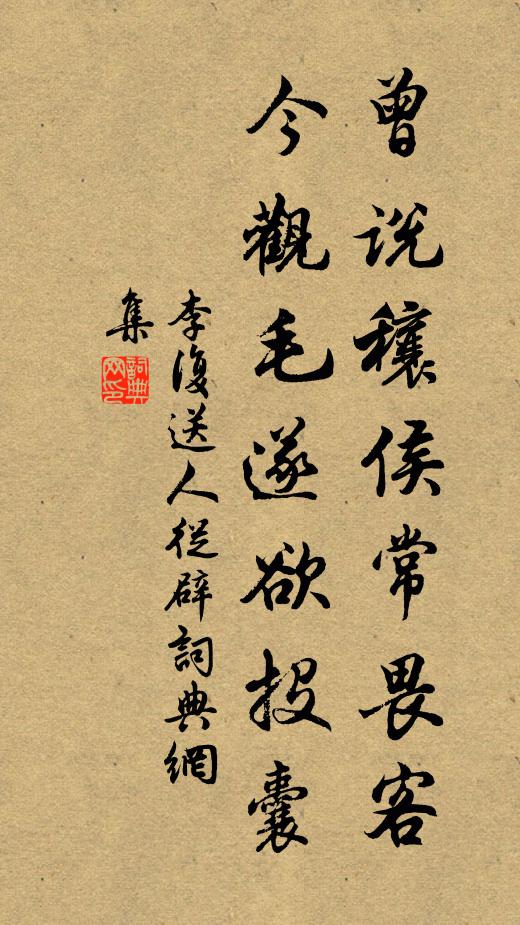 曾說穰侯常畏客
今觀毛遂欲投囊
李復送人從辟詞典網
集
詞典
网印